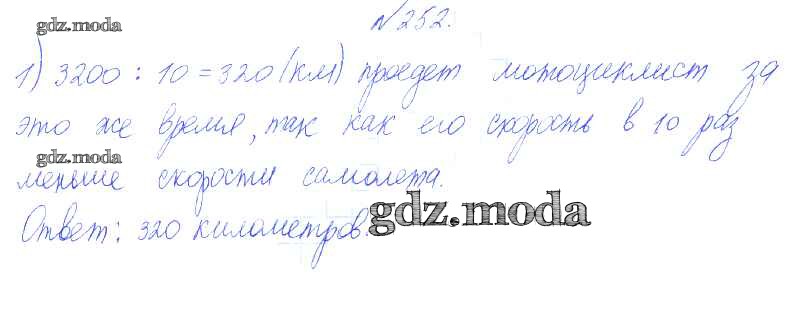 gdz.moda
№252.
1) 3200 : 10 = 320 (км) проедет мотоциклист за
это же время, так как его скорость в 10 раз
gdz.moda
меньше скорости самолета.
gdz.moda
Ответ: 320 километров.